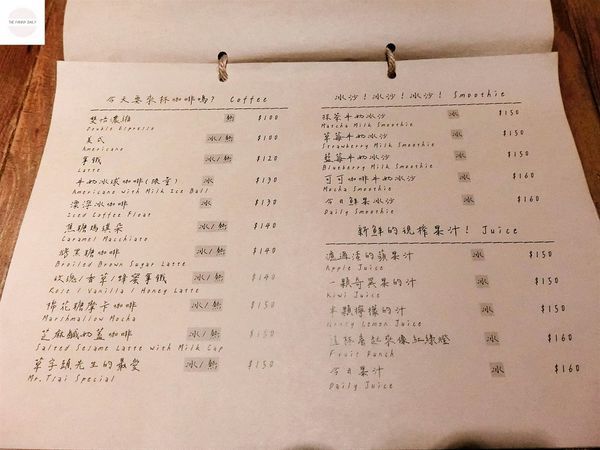 THE FUNNY DAILY
今天要來杯咖啡嗎? Coffee
雙倍濃縮 熱 $100
Double Espresso
美式 冰/熱 $100
Americano
拿鐵 冰/熱 $120
Latte
牛奶冰球咖啡(限量) 冰 $130
Americano with Milk Ice Ball
漂浮冰咖啡 冰 $130
Iced Coffee Float
焦糖瑪琪朵 冰/熱 $140
Caramel Macchiato
烤黑糖咖啡 冰/熱 $140
Broiled Brown Sugar Latte
玫瑰/香草/蜂蜜拿鐵 冰/熱 $140
Rose / Vanilla / Honey Latte
棉花糖摩卡咖啡 冰/熱 $150
Marshmallow Mocha
芝麻鹹奶蓋咖啡 冰/熱 $150
Salted Sesame Latte with Milk Cap
草字頭先生的最愛 冰/熱 $150
Mr.Tsai Special
冰沙!冰沙!冰沙! Smoothie
抹茶牛奶冰沙 冰 $150
Matcha Milk Smoothie
草莓牛奶冰沙 冰 $150
Strawberry Milk Smoothie
藍莓牛奶冰沙 冰 $150
Blueberry Milk Smoothie
可可咖啡牛奶冰沙 冰 $150
Mocha Smoothie
今日鮮果冰沙 冰 $160
Daily Smoothie
新鮮的現榨果汁! Juice
濾過渣的蘋果汁 冰 $150
Apple Juice
一顆奇異果的汁 冰 $150
Kiwi Juice
半顆檸檬的汁 冰 $150
Lemon Juice
這杯看起來像紅綠燈 冰 $160
Fruit Punch
今日果汁 冰 $160
Daily Juice